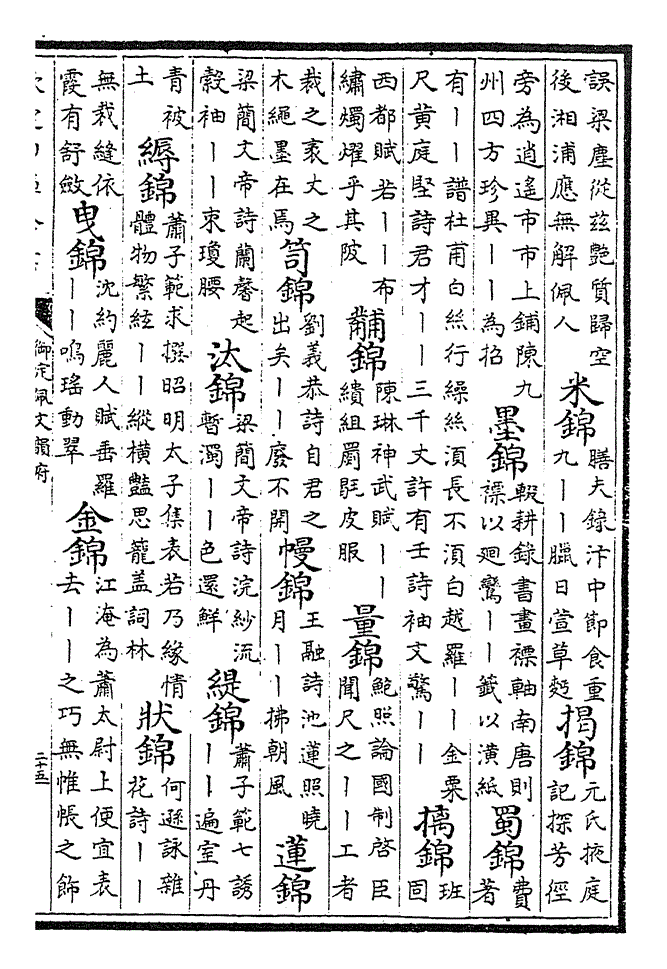 誤梁塵從兹艶質歸空
後湘浦應無解佩人
米錦
膳夫錄汴中節食重
九丨丨臘日萱草麪
揭錦
元氏掖庭
記探芳徑
旁為逍遙市市上鋪陳九
州四方珍異丨丨為招
墨錦
輟耕錄書畫褾軸南唐則
褾以廻鸞丨丨籤以潢紙
蜀錦
費
著
有丨丨譜杜甫白絲行繰絲湏長不湏白越羅丨丨金粟
尺黄庭堅詩君才丨丨三千丈許有壬詩袖文驚丨丨
摛錦
班
固
西都賦若丨丨布
繡燭燿乎其陂
黼錦
陳琳神武賦丨丨
繢組罽皮服
量錦
鮑照論國制啓臣
聞尺之丨丨工者
裁之袤丈之
木繩墨在焉
笥錦
劉義恭詩自君之
出矣丨丨廢不開
幔錦
王融詩池蓮照曉
月丨丨拂朝風
蓮錦
梁簡文帝詩蘭馨起
縠袖丨丨束瓊腰
汰錦
梁簡文帝詩浣紗流
暫濁丨丨色還鮮
緹錦
蕭子範七誘
丨丨遍室丹
青被
土
縟錦
蕭子範求撰昭明太子集表若乃緣情
體物繁絃丨丨縱橫豔思籠盖詞林
狀錦
何遜詠雜
花詩丨丨
無裁縫依
霞有舒斂
曳錦
沈約麗人賦垂羅
丨丨鳴瑤動翠
金錦
江淹為蕭太尉上便宜表
去丨丨之巧無惟帳之飾
御定佩文韻府
二十五